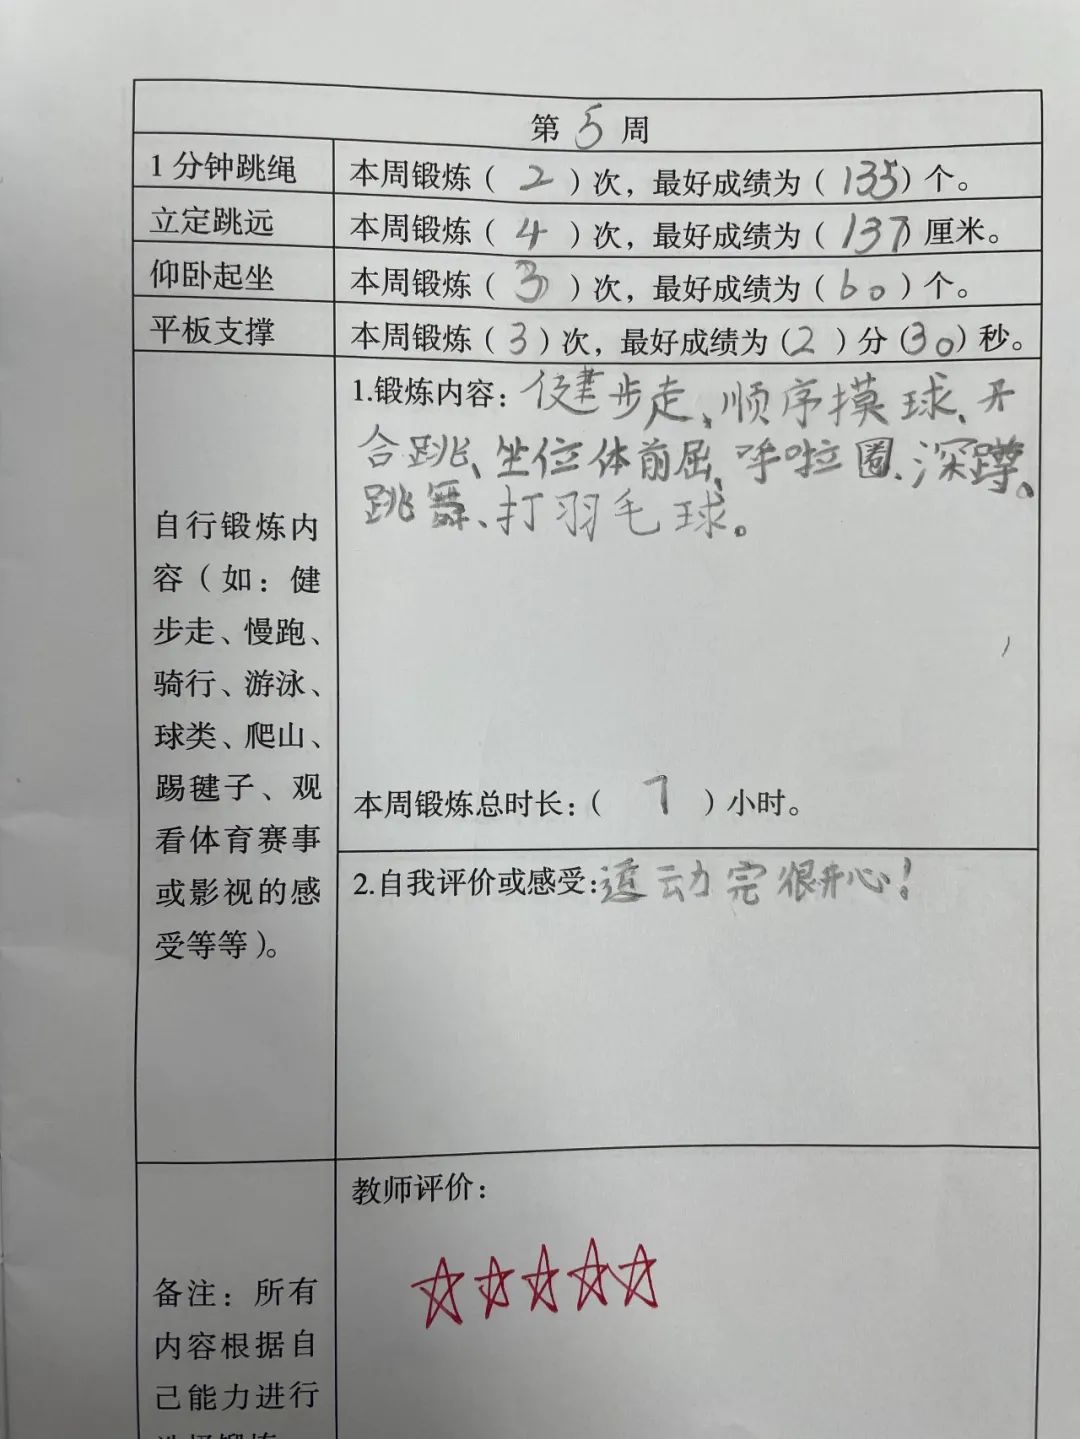 第 5 周
1 分钟跳绳 本周锻炼( 2 )次，最好成绩为( 135 )个。
立定跳远 本周锻炼( 4 )次，最好成绩为( 137 )厘米。
仰卧起坐 本周锻炼( 3 )次，最好成绩为( 60 )个。
平板支撑 本周锻炼( 3 )次，最好成绩为( 2 )分( 30 )秒。
自行锻炼内
容（如：健
步走、慢跑、
骑行、游泳、
球类、爬山、
踢毽子、观
看体育赛事
或影视的感
受等等）。
1.锻炼内容：健步走、顺序摸球、开
合跳、坐位体前屈、呼啦圈、深蹲、
跳舞、打羽毛球。
本周锻炼总时长：( 7 )小时。
2.自我评价或感受：运动完很开心！
备注：所有
内容根据自
己能力进行
教师评价：